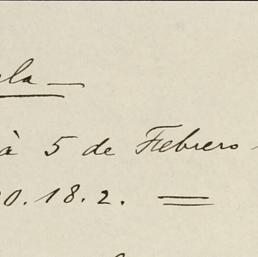 à 5 de Febrero
0.18.2.